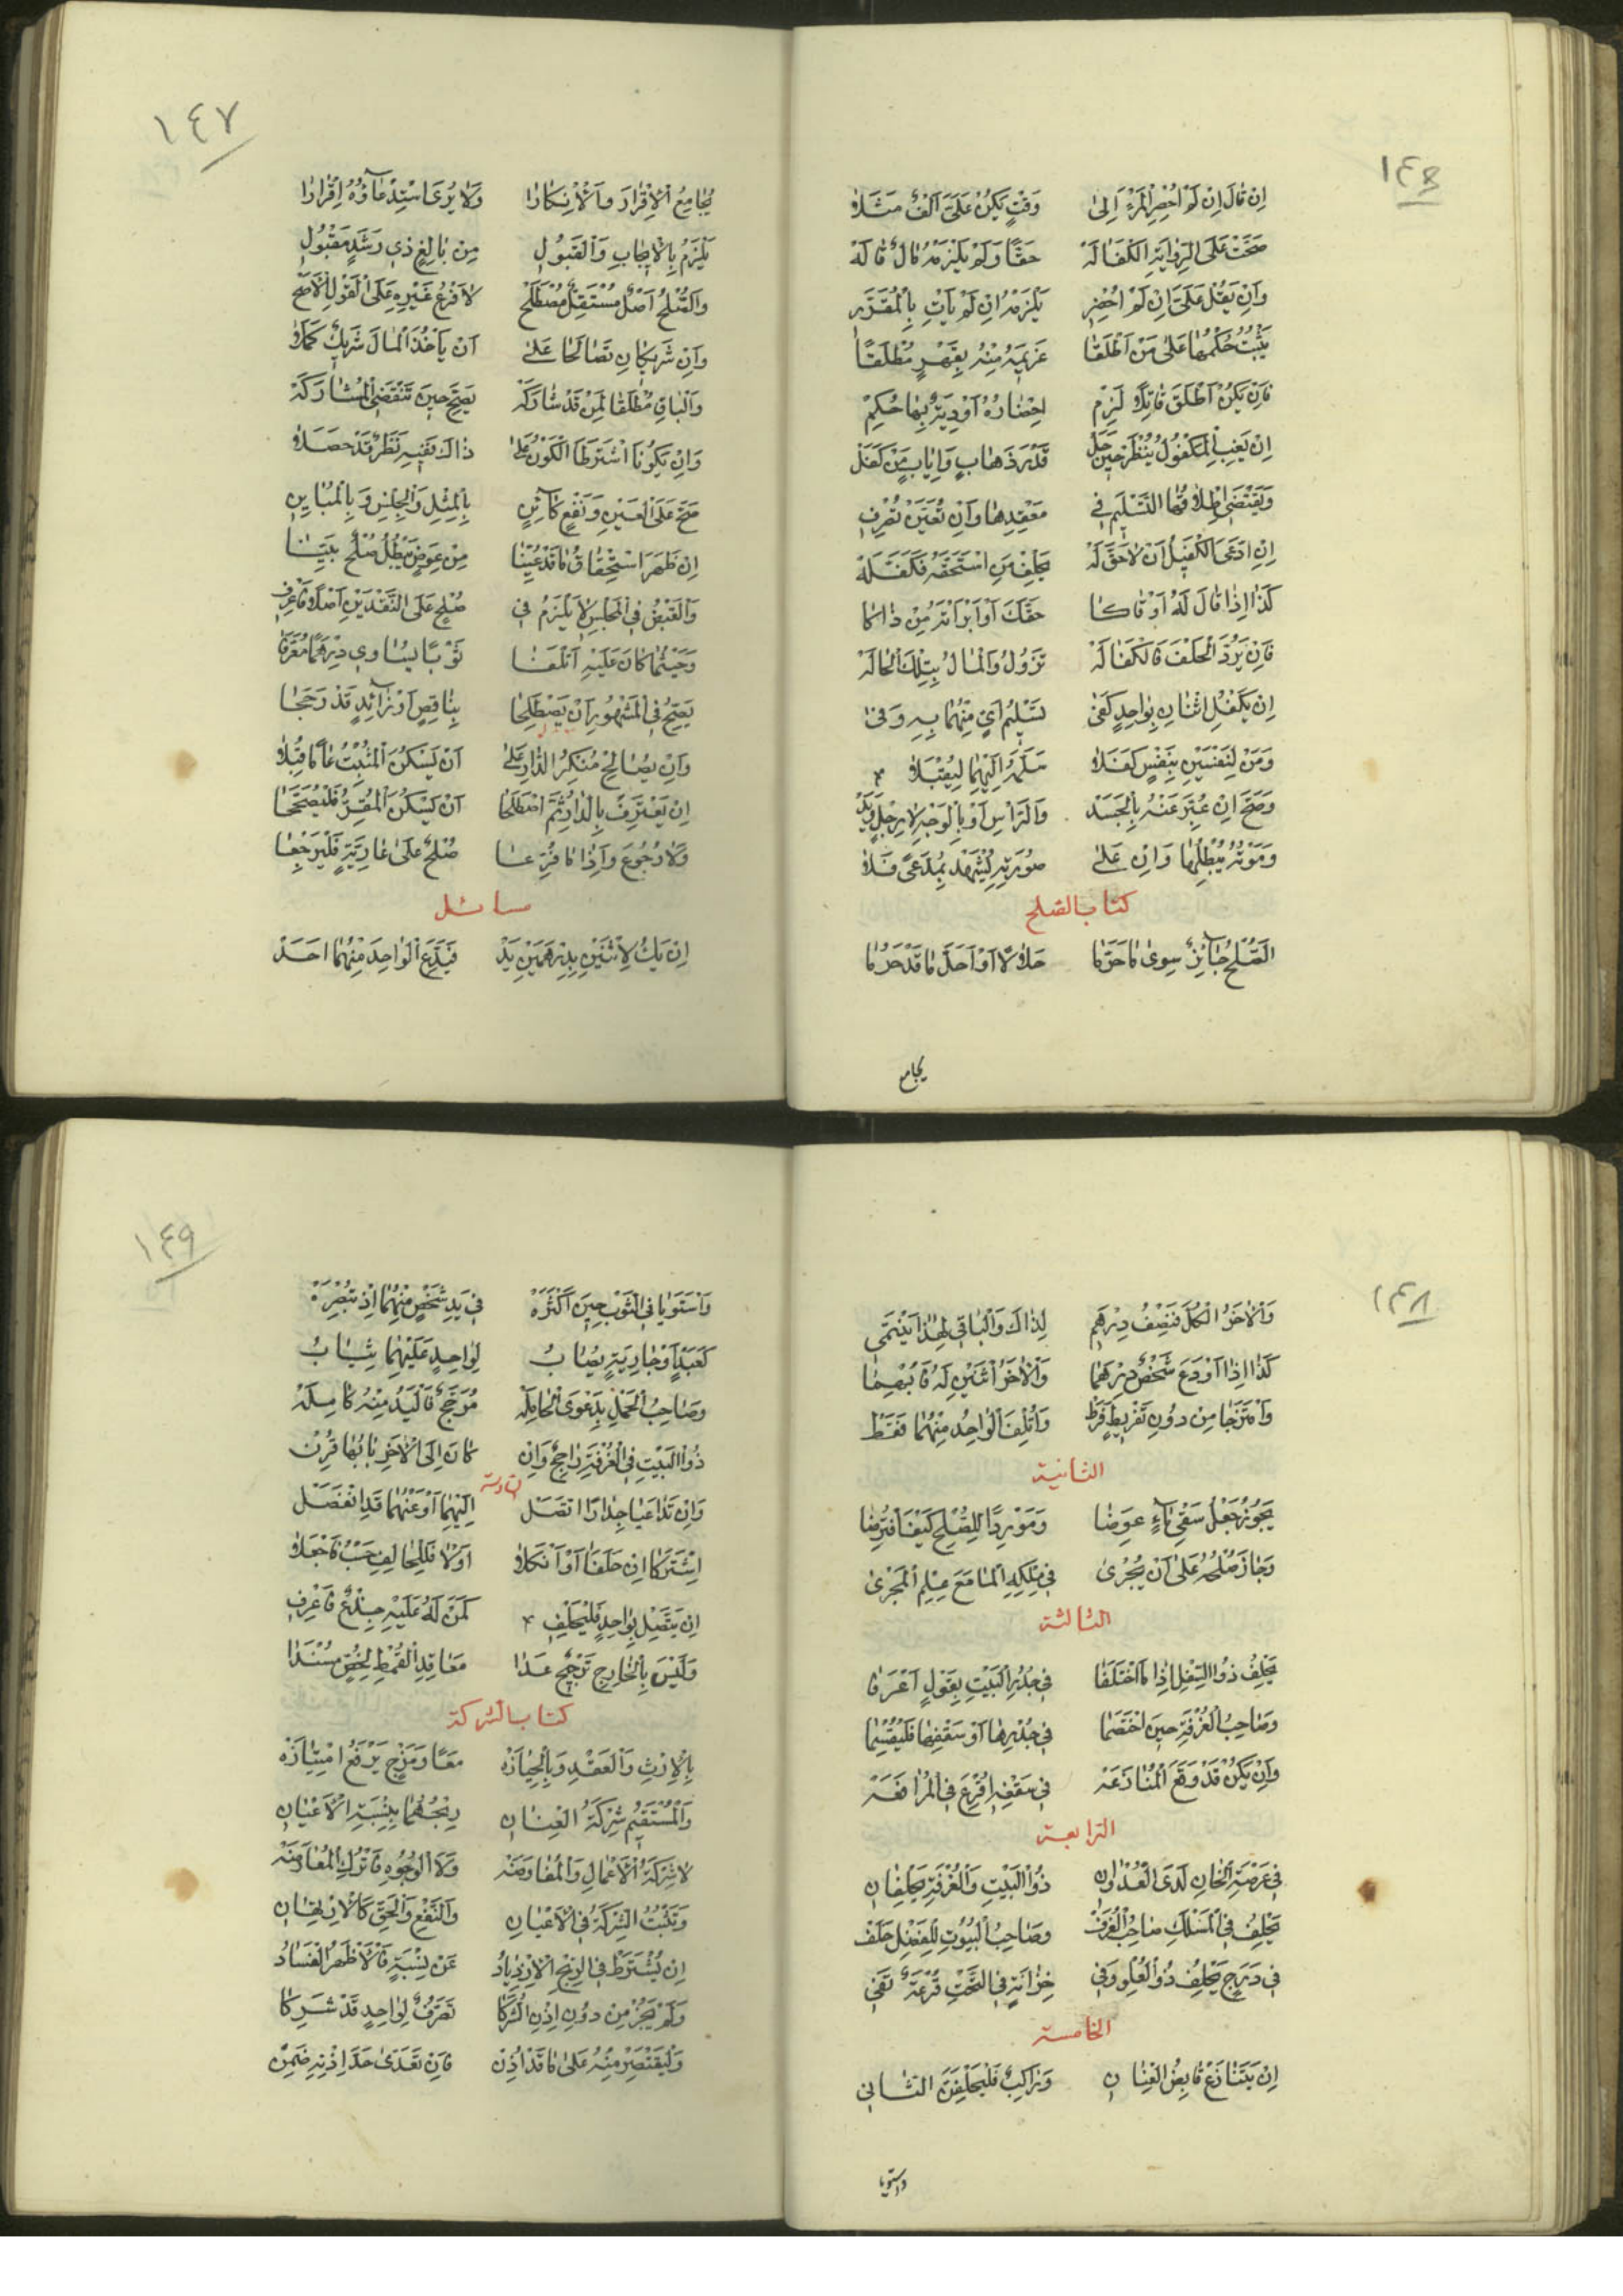 ١٤٦
إِنْ قَالَ إِنْ لَمْ أُحْضِرِ الْمَرْءَ إِلَىٰ وَقْتٍ يَكُنْ عَلَيَّ أَلْفٌ مَثَلاً
صَحَّتْ عَلَى الرِّوَايَةِ الْكَفَالَهْ حَقًّا وَلَمْ يَلْزَمْهُ مَالٌ قَالَهْ
وَإِنْ يَقُلْ عَلَيَّ إِنْ لَمْ أُحْضِرِ يَلْزَمْهُ إِنْ لَمْ يَأْتِ بِالْمُقَدَّرِ
يَثْبُتُ حُكْمُهَا عَلَىٰ مَنْ أَطْلَقَا غَرِيمَهُ مِنْهُ بِقَهْرٍ مُطْلَقًا
فَإِنْ يَكُنْ أَطْلَقَ قَاتِلاً لَزِمْ إِحْضَارُهُ أَوْ دِيَةٌ بِهَا حُكِمْ
إِنْ يَغِبِ الْمَكْفُولُ يُنْظَرْ حِينَ حَلّ قَدْرَ ذَهَابٍ وَإِيَابٍ مَنْ كَفَلْ
وَيَقْتَضِي إِطْلَاقُهَا التَّسْلِيمَ فِي مَعْقِدِهَا وَإِنْ تُعَيَّنْ تُصْرَفِ
إِنِ ادَّعَى الْكَفِيلُ أَنْ لَا حَقَّ لَهْ يَحْلِفْ مَنِ اسْتَحَقَّهُ فَكَفَّلَهْ
كَذَا إِذَا قَالَ لَهُ أَوْفَاكَا حَقَّكَ أَوْ أَبْرَأْتَهُ مِنْ ذَاكَا
فَإِنْ يَرُدَّ الْحَلْفَ فَالْكَفَالَهْ تَزُولُ وَالْمَالُ بِتِلْكَ الْحَالَهْ
إِنْ يَكْفُلِ اثْنَانِ بِوَاحِدٍ كَفَىٰ تَسْلِيمُ أَيٍّ مِنْهُمَا بِهِ وَفَىٰ
وَمَنْ لِنَفْسَيْنِ بِنَفْسٍ كَفَلَا سَلَّمَهُ إِلَيْهِمَا لِيُقْبَلَا
وَصَحَّ إِنْ عُبِّرَ عَنْهُ بِالْجَسَدْ وَالرَّأْسِ أَوْ بِالْوَجْهِ لَا رِجْلٍ وَيَدْ
وَمَوْتُهُ يُبْطِلُهَا وَإِنْ عَلَىٰ صُورَتِهِ لِيُشْهَدْ بِمُدَّعًى فَلَا
كتاب الصلح
الصُّلْحُ جَائِزٌ سِوَىٰ مَا حَرَّمَا حَلَالاً أَوْ أَحَلَّ مَا قَدْ حَرُمَا
يجامع
١٤٧
يُجَامِعُ الْإِقْرَارَ وَالْإِنْكَارَا وَلَا يُرَىٰ اسْتِدْعَاؤُهُ إِقْرَارَا
يَلْزَمُ بِالْإِيجَابِ وَالْقَبُولِ مِنْ بَالِغٍ ذِي رَشَدٍ مَقْبُولِ
وَالصُّلْحُ أَصْلٌ مُسْتَقِلٌّ مُصْطَلَحْ لَا فَرْعُ غَيْرِهِ عَلَى الْقَوْلِ الْأَصَحّ
وَإِنْ شَرِيكَانِ تَصَالَحَا عَلَىٰ أَنْ يَأْخُذَ الْمَالَ شَرِيكٌ كَمَلَا
وَالْبَاقِ مُطْلَقًا لِمَنْ قَدْ شَارَكَهْ يَصِحُّ حِينَ تَنْقَضِي الْمُشَارَكَهْ
وَإِنْ يَكُونَا اشْتَرَطَا الْكَوْنُ عَلَىٰ ذَاكَ فَفِيهِ نَظَرٌ قَدْ حَصَلَا
صَحَّ عَلَى الْعَيْنِ وَنَفْعٍ كَائِنِ بِالْمِثْلِ وَالْجِنْسِ وَبِالْمُبَايِنِ
إِنْ ظَهَرَ اسْتِحْقَاقُ مَا قَدْ عُيِّنَا مِنْ عِوَضٍ يَبْطُلُ صُلْحٌ بَيِّنَا
وَالْقَبْضُ فِي الْمَجْلِسِ لَا يَلْزَمُ فِي صُلْحٍ عَلَى النَّقْدَيْنِ أَصْلاً فَاعْرِفِ
وَحَيْثُمَا كَانَ عَلَيْهِ أَتْلَفَا ثَوْبًا يُسَاوِي دِرْهَمًا مُعَرَّفَا
يَصِحُّ فِي الْمَشْهُورِ أَنْ يَصْطَلِحَا بِنَاقِصٍ أَوْ زَائِدٍ قَدْ رَجَحَا
وَإِنْ يُصَالِحْ مُنْكِرُ الدَّارِ عَلَىٰ أَنْ يَسْكُنَ الْمُثْبِتُ عَامًا قُبِلَا
إِنْ يَعْتَرِفْ بِالدَّارِ ثُمَّ اصْطَلَحَا أَنْ يَسْكُنَ الْمُقِرُّ فَلْيُصَحَّحَا
وَلَا رُجُوعَ وَإِذَا مَا فُرِّعَا صُلْحٌ عَلَىٰ عَارِيَةٍ فَلْيَرْجِعَا
مسائل
إِنْ يَكُ لِاثْنَيْنِ بِدِرْهَمَيْنِ يَدْ فَيَدَّعِ الْوَاحِدَ مِنْهُمَا أَحَدْ
١٤٨
وَالْآخَرُ الْكُلَّ فَنِصْفُ دِرْهَمِ لِذَاكَ وَالْبَاقِي لِهَذَا يَنْتَمِي
كَذَا إِذَا أَوْدَعَ شَخْصٌ دِرْهَمَا وَالْآخَرُ اثْنَيْنِ لَهُ فَأُبْهِمَا
وَامْتَزَجَا مِنْ دُونِ تَفْرِيطٍ فَرَطْ وَأُتْلِفَ الْوَاحِدُ مِنْهُمَا فَقَطْ
الثانية
يَجُوزُ جَعْلُ سَقْيِ مَاءٍ عِوَضَا وَمَوْرِدًا لِلصُّلْحِ كَيْفَ افْتُرِضَا
وَجَازَ صُلْحُهُ عَلَىٰ أَنْ يُجْرَىٰ فِي مِلْكِهِ الْمَا مَعَ عِلْمِ الْمَجْرَىٰ
الثالثة
يَحْلِفُ ذُو السِّفْلِ إِذَا مَا اخْتَلَفَا فِي جُدُرِ الْبَيْتِ بِقَوْلٍ أُعْرِفَا
وَصَاحِبُ الْغُرْفَةِ حِينَ اخْتَصَمَا فِي جُدْرِهَا أَوْ سَقْفِهَا فَلْيُقْسِمَا
وَإِنْ يَكُنْ قَدْ وَقَعَ الْمُنَازَعَهْ فِي سَقْفِهِ أُقْرِعَ فِي الْمُرَافَعَهْ
الرابعة
فِي عَرْصَةِ الْخَانِ لَدَى الْعُدْوَانِ ذُو الْبَيْتِ وَالْغُرْفَةِ يَحْلِفَانِ
يَحْلِفُ فِي الْمَسْلَكِ صَاحِبُ الْغُرَفْ وَصَاحِبُ الْبُيُوتِ لِلْفَضْلِ حَلَفْ
فِي دَرَجٍ يَحْلِفُ ذُو الْعُلْوِ وَفِي خِزَانَةٍ فِي التَّحْتِ قُرْعَةٌ تَفِي
الخامسة
إِنْ يَتَنَازَعْ قَابِضُ الْعِنَانِ وَرَاكِبٌ فَلْيَحْلِفَنَّ الثَّانِي
واستويا
١٤٩
وَاسْتَوَيَا فِي الثَّوْبِ حِينَ أَكْثَرُهْ فِي يَدِ شَخْصٍ مِنْهُمَا إِذْ تُبْصِرُهْ
كَعَبْدٍ أَوْ جَارِيَةٍ يُصَابُ لِوَاحِدٍ عَلَيْهِمَا ثِيَابُ
وَصَاحِبُ الْحَمْلِ بِدَعْوَى الْحَامِلَهْ مُرَجَّحٌ فَالْيَدُ مِنْهُ كَامِلَهْ
ذُو الْبَيْتِ فِي الْغُرْفَةِ رَاجِحٌ وَإِنْ كَانَ إِلَى الْآخَرِ بَابُهَا قُرِنْ
السادسة
وَإِنْ تَدَاعَيَا جِدَارًا اتَّصَلْ إِلَيْهِمَا أَوْ عَنْهُمَا قَدِ انْفَصَلْ
اشْتَرَكَا إِنْ حَلَفَا أَوْ أَنْكَلَا أَوْلَا فَلِلْحَالِفِ حَسْبُ فَاجْعَلَا
إِنْ يَتَّصِلْ بِوَاحِدٍ فَلْيَحْلِفِ كَمَنْ لَهُ عَلَيْهِ جِذْعٌ فَاعْرِفِ
وَلَيْسَ بِالْخَارِجِ تَرْجِيحٌ غَدَا مَعَاقِدُ الْقُمْطِ لِخُصٍّ مُسْنَدَا
كتاب الشركة
بِالْإِرْثِ وَالْعَقْدِ وَبِالْحِيَازَهْ مَعًا وَمَزْجٍ يَرْفَعُ امْتِيَازَهْ
وَالْمُسْتَقِيمُ شِرْكَةُ الْعِنَانِ رِبْحُهُمَا بِنِسْبَةِ الْأَعْيَانِ
لَا شِرْكَةُ الْأَعْمَالِ وَالْمُفَاوَضَهْ وَلَا الْوُجُوهِ فَاتْرُكِ الْمُعَاوَضَهْ
وَتَثْبُتُ الشِّرْكَةُ فِي الْأَعْيَانِ وَالنَّفْعِ وَالْحَقِّ كَالِارْتِهَانِ
إِنْ يُشْتَرَطْ فِي الرِّبْحِ الِازْدِيَادُ عَنْ نِسْبَةٍ فَالْأَظْهَرُ الْفَسَادُ
وَلَمْ يَجُزْ مِنْ دُونِ إِذْنِ الشُّرَكَا تَصَرُّفٌ لِوَاحِدٍ قَدْ شَرِكَا
وَلْيَقْتَصِرْ مِنْهُ عَلَىٰ مَا قَدْ أُذِنْ فَإِنْ تَعَدَّىٰ حَدَّ إِذْنِهِ ضَمِنْ